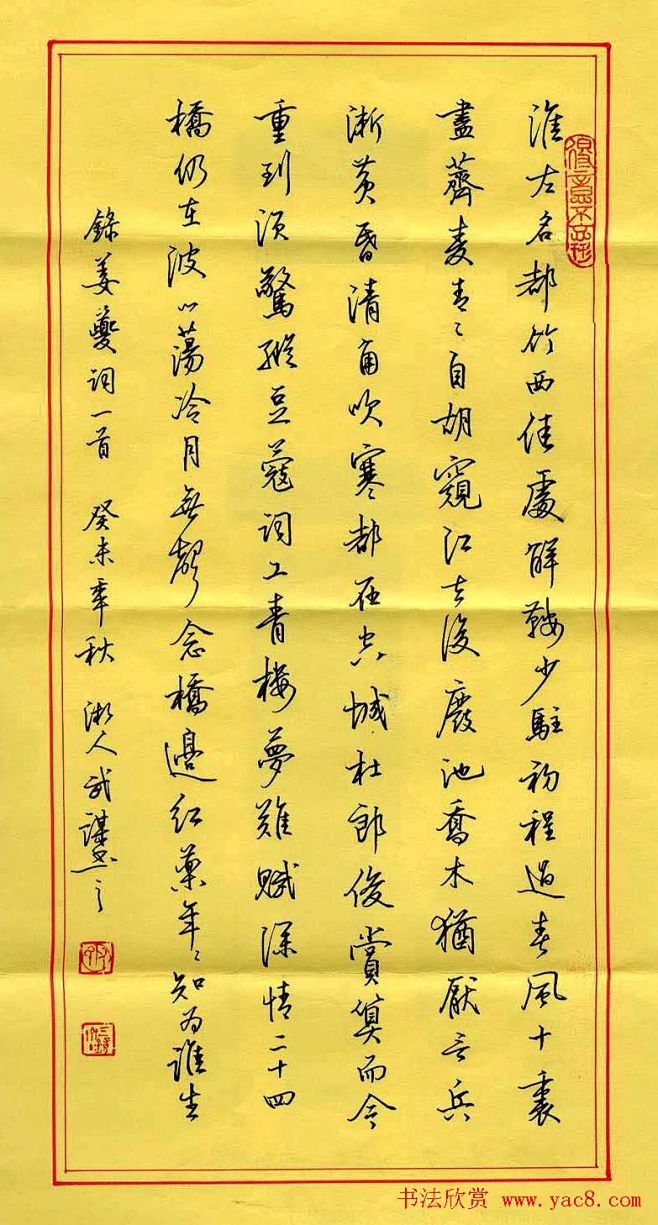 淮左名都竹西佳處解鞍少駐初程過春風十裏
盡薺麥青々自胡窺江去後廢池喬木猶厭言兵
漸黄昏清角吹寒都在空城杜郎俊賞算而今
重到須驚縱豆蔻詞工青樓夢難賦深情二十四
橋仍在波心蕩冷月無聲念橋邊紅藥年々知爲誰生
錄姜夔詞一首 癸未年秋 湘人武謀書之
书法欣赏 www.yac8.com